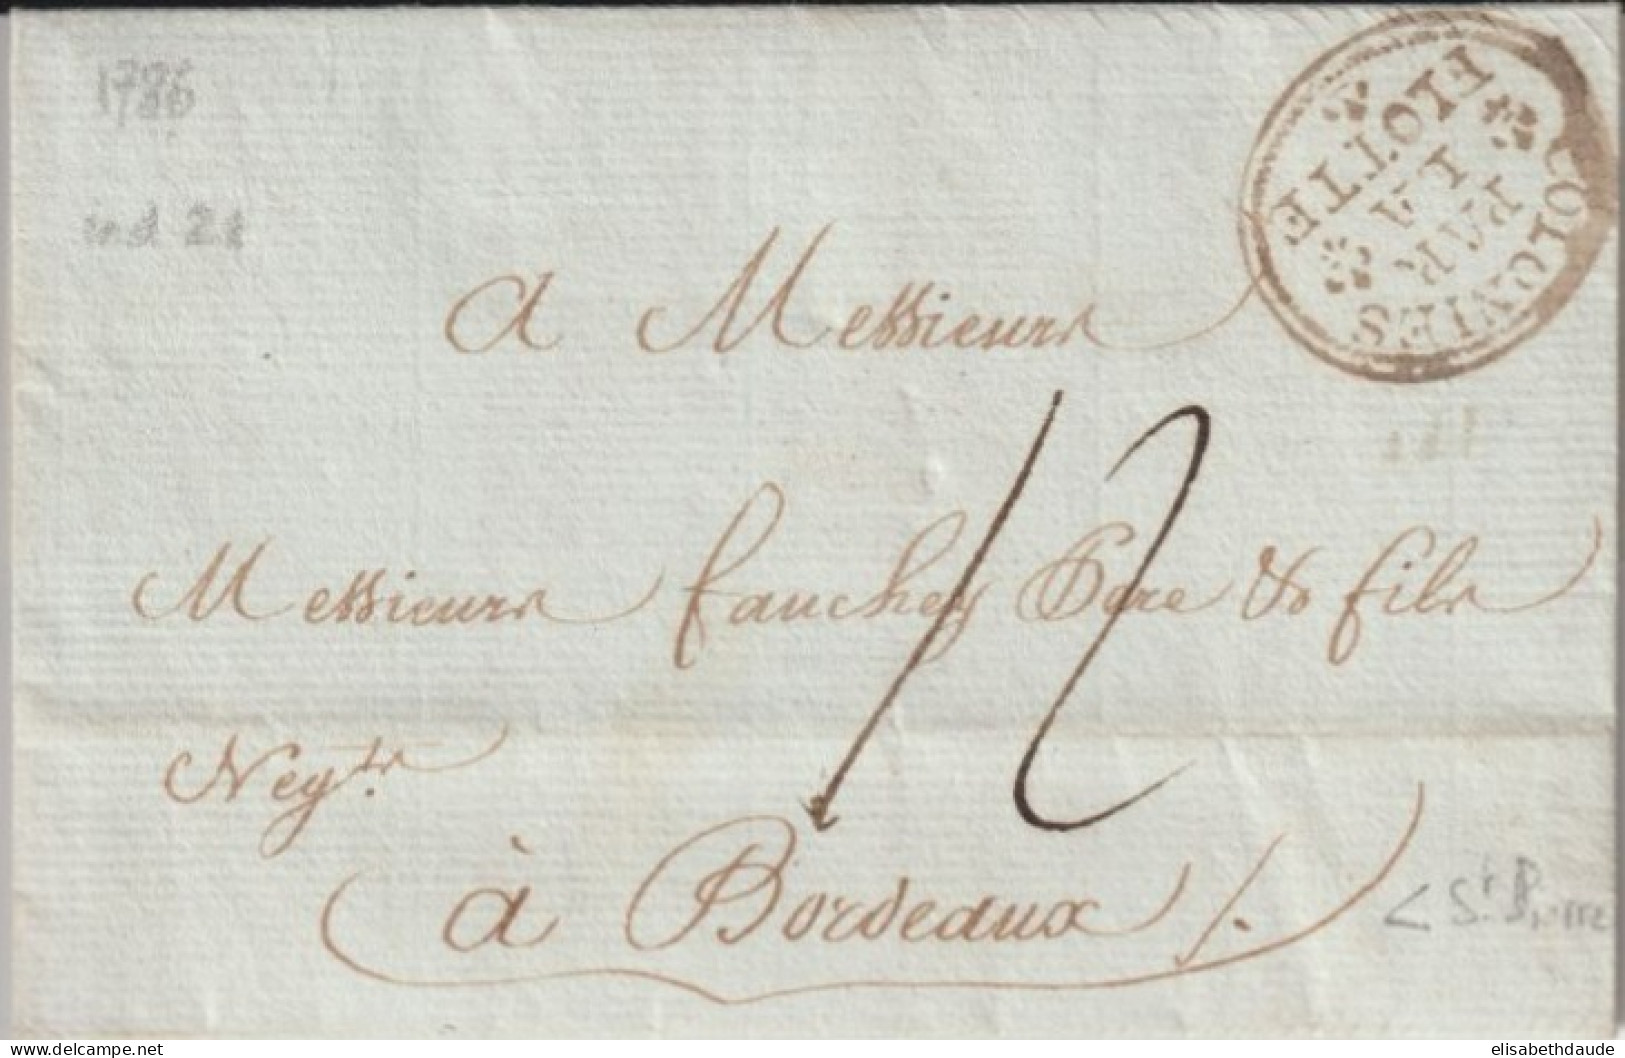 1786
ind 21
COL. UVIES
PAR
LA
FLOTTE
A Messieurs
12
Messieurs fauchey Pere & fils
Neg.ts
à Bordeaux /.
< St Pierre
elisabethdaude